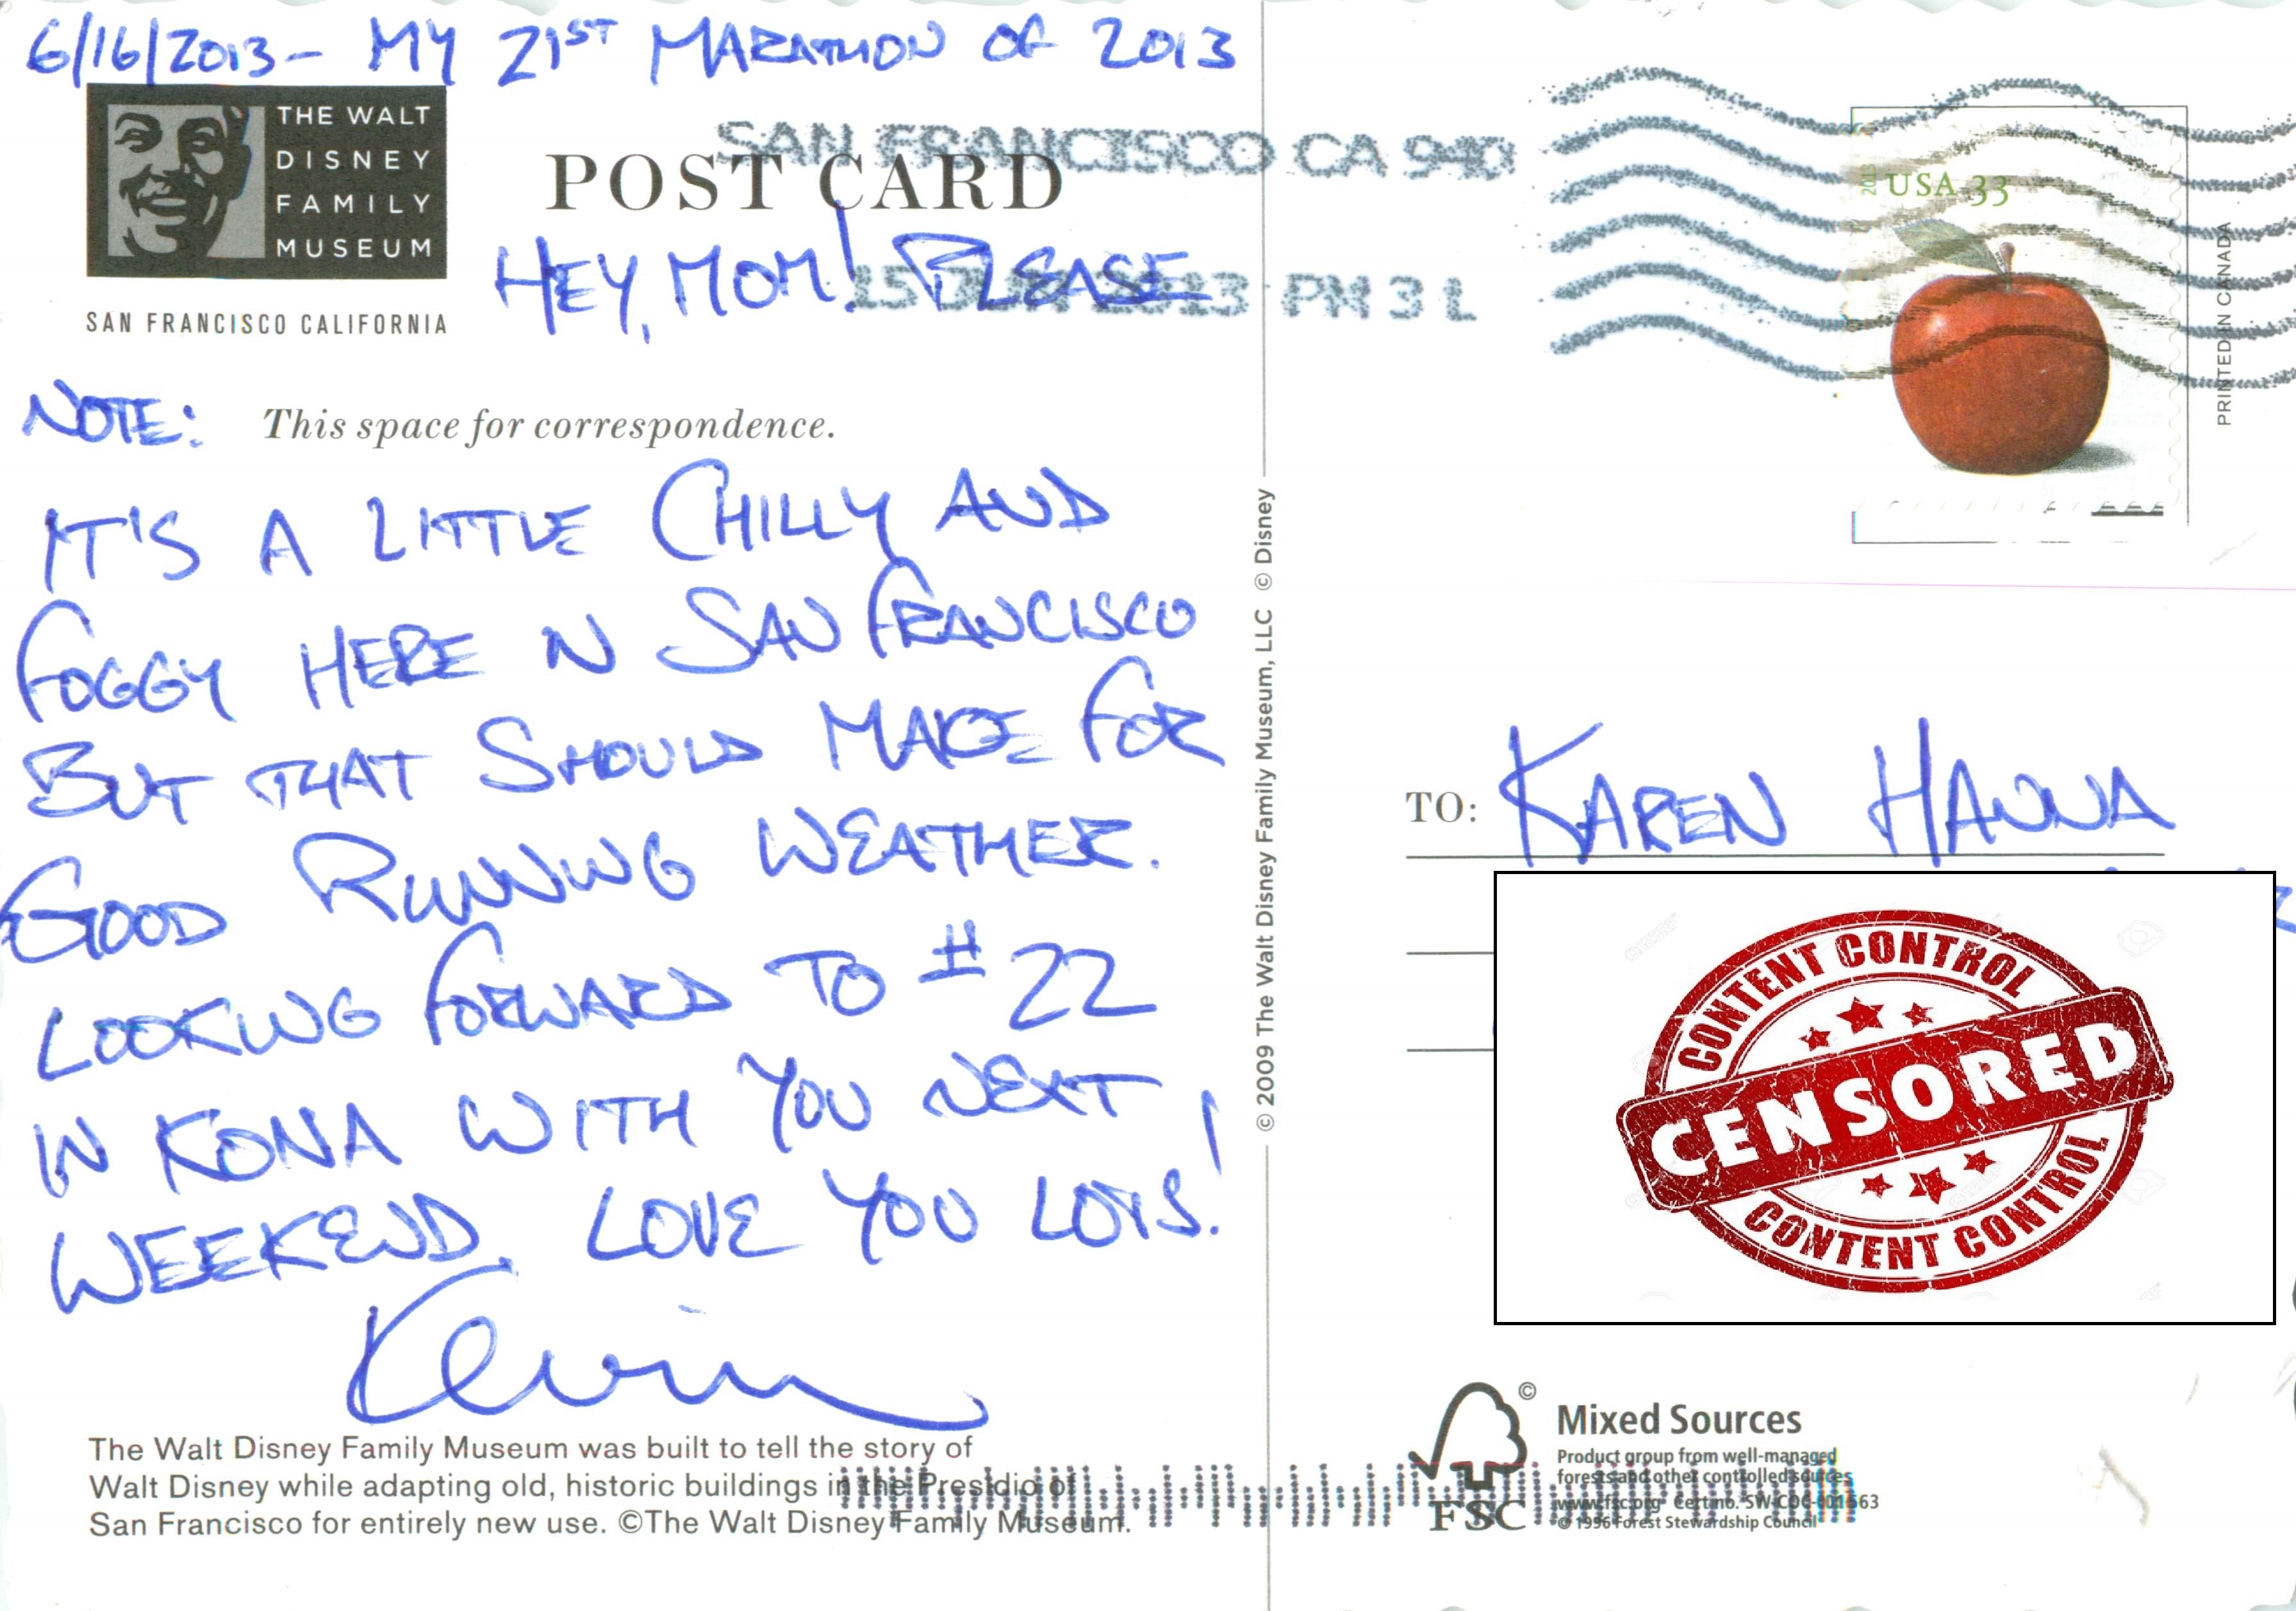 6/16/2013 - MY 21ST MARATHON OF 2013
THE WALT
DISNEY
FAMILY
MUSEUM
SAN FRANCISCO CALIFORNIA
POST CARD
SAN FRANCISCO CA 940
PM 3 L
HEY, MOM! PLEASE
NOTE:
This space for correspondence.
IT'S A LITTLE CHILLY AND
FOGGY HERE IN SAN FRANCISCO
BUT THAT SHOULD MAKE FOR
GOOD RUNNING WEATHER.
LOOKING FORWARD TO #22
IN KONA WITH YOU NEXT
WEEKEND. LOVE YOU LOTS!
Kevin
The Walt Disney Family Museum was built to tell the story of
Walt Disney while adapting old, historic buildings in the Presidio of
San Francisco for entirely new use. ©The Walt Disney Family Museum.
© 2009 The Walt Disney Family Museum, LLC © Disney
2013
USA 33
PRINTED IN CANADA
TO: KAREN HANNA
CONTENT CONTROL
CENSORED
CONTENT CONTROL
©
FSC
Mixed Sources
Product group from well-managed
forests and other controlled sources
www.fsc.org Cert no. SW-COC-001563
© 1996 Forest Stewardship Council